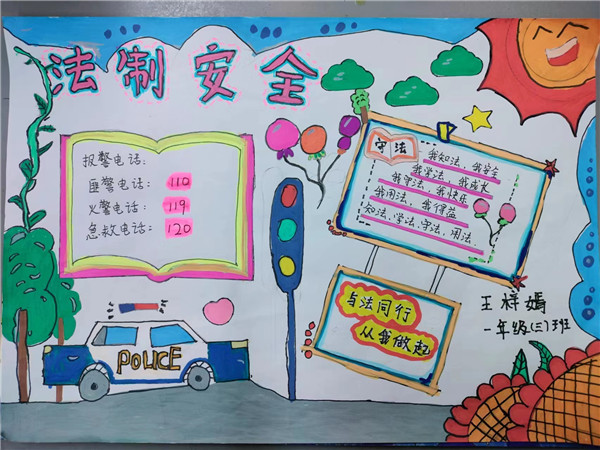 法制安全
报警电话：
匪警电话：110
火警电话：119
急救电话：120
守法
我知法，我安全
我学法，我成长
我守法，我快乐
我用法，我得益
知法、学法、守法、用法、
与法同行
从我做起
POLICE
王梓嫣
一年级(三)班